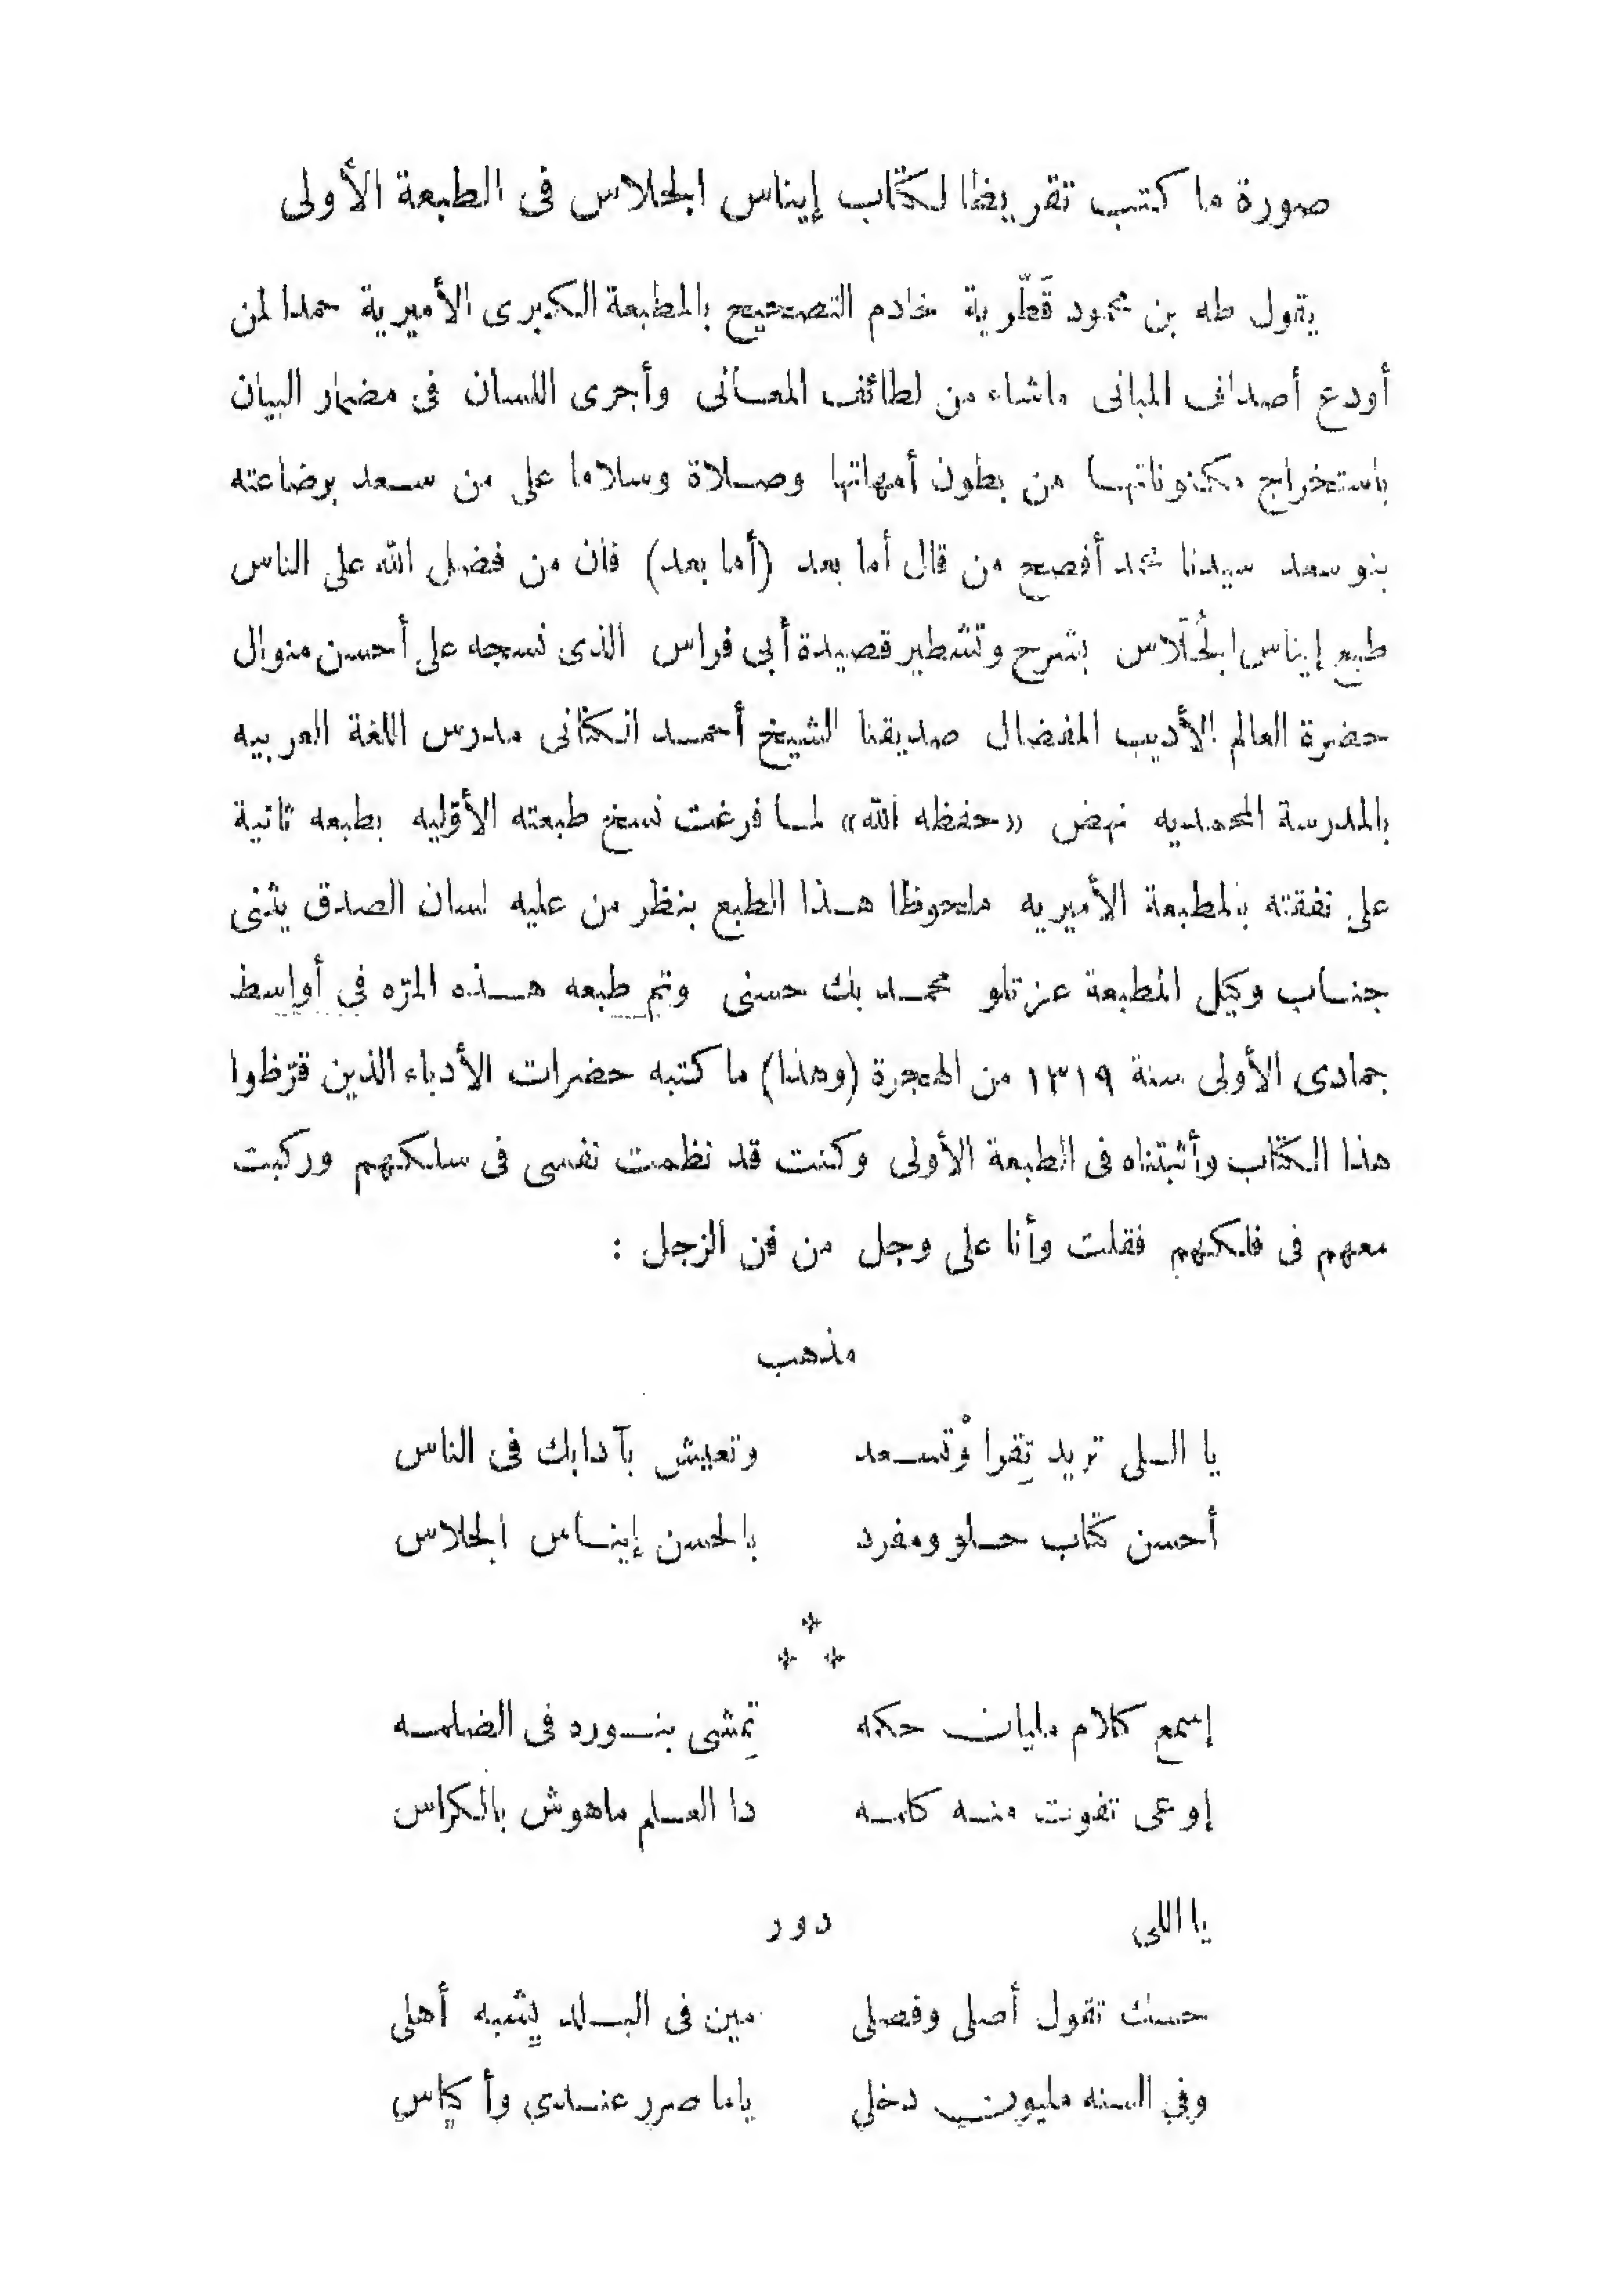 صورة ما كتب تقريظا لكتاب إيناس الجلاس فى الطبعة الأولى
يقول طه بن محمود قَطّرية خادم التصحيح بالمطبعة الكبرى الأميرية حمدا لمن
أودع أصداف المبانى ماشاء من لطائف المعانى وأجرى اللسان فى مضمار البيان
باستخراج مكنوناتها من بطون أمهاتها وصلاة وسلاما على من سعد برضاعته
بنو سعد سيدنا محمد أفصح من قال أما بعد (أما بعد) فان من فضل الله على الناس
طبع إيناس الجُلّاس بشرح وتشطير قصيدة أبى فراس الذى نسجه على أحسن منوال
حضرة العالم الأديب المفضال صديقنا الشيخ أحمد الكتانى مدرس اللغة العربيه
بالمدرسة المحمديه نهض «حفظه الله» لما فرغت نسخ طبعته الأوّليه بطبعه ثانية
على نفقته بالمطبعة الأميريه ملحوظا هذا الطبع بنظر من عليه لسان الصدق يثنى
جناب وكيل المطبعة عزتلو محمد بك حسنى وتم طبعه هذه المرّه فى أواسط
جمادى الأولى سنة ١٣١٩ من الهجرة (وهذا) ما كتبه حضرات الأدباء الذين قرّظوا
هذا الكتاب وأثبتناه فى الطبعة الأولى وكنت قد نظمت نفسى فى سلكهم وركبت
معهم فى فلكهم فقلت وأنا على وجل من فن الزجل :
مذهب
يا اللى تريد تِقرا وْتسعد وتعيش بآدابك فى الناس
أحسن كتاب حلو ومفرد بالحسن إيناس الجلاس
إسمع كلام مليان حكمه تِمشى بنوره فى الضلمه
إوعى تفوت منه كلمه دا العلم ماهوش بالكراس
يا اللى دور
حسك تقول أصلى وفصلى مين فى البلد يِشبه أهلى
وفى السنه مليون دخلى ياما صرر عندى وأكياس